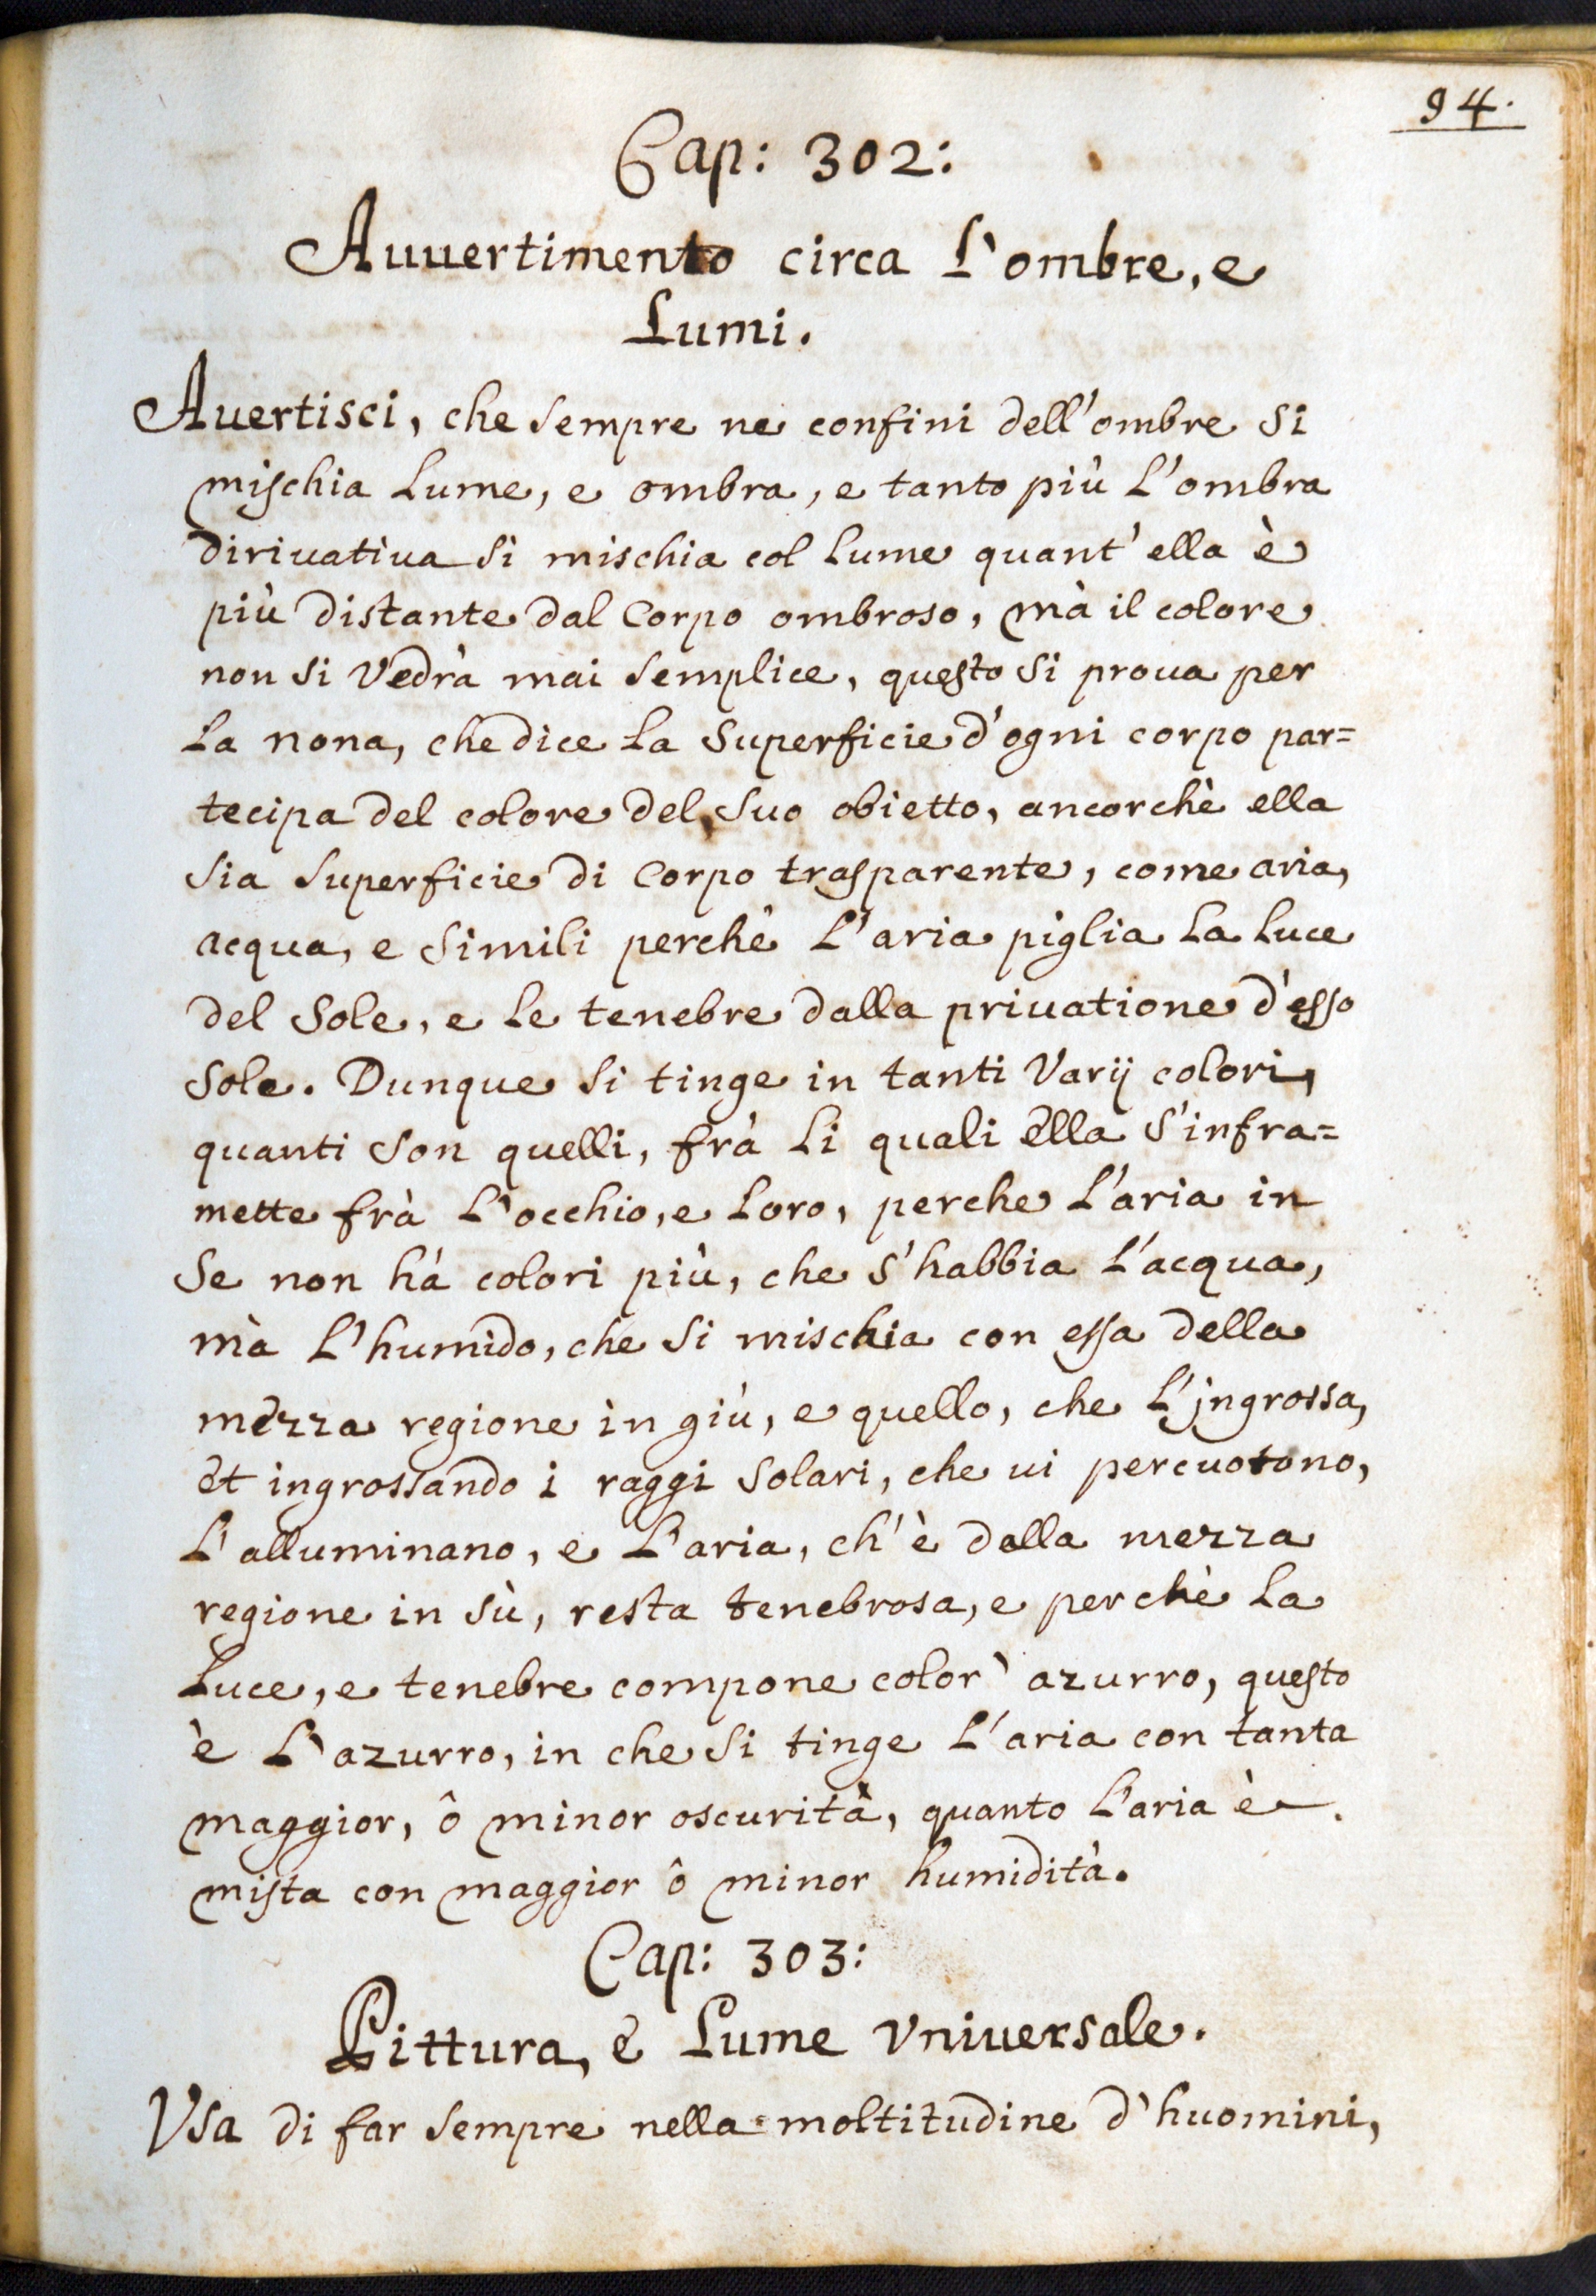 94.
Cap: 302:
Auuertimento circa l'ombre, e
Lumi.
Auertisci, che sempre ne confini dell'ombre si
mischia lume, e ombra, e tanto più l'ombra
diriuatiua si mischia col lume quant'ella è
più distante dal Corpo ombroso, mà il colore
non si Vedrà mai semplice, questo si proua per
la nona, che dice la Superficie d'ogni corpo par=
tecipa del colore del suo obietto, ancorchè ella
sia superficie di Corpo trasparente, come aria,
acqua, e simili perchè l'aria piglia la luce
del Sole, e le tenebre dalla priuatione d'esso
Sole. Dunque si tinge in tanti Varij colori,
quanti son quelli, frà li quali ella s'infra=
mette frà l'occhio, e loro, perche l'aria in
se non hà colori più, che s'habbia l'acqua,
mà l'humido, che si mischia con essa della
mezza regione in giù, e quello, che l'jngrossa,
et ingrossando i raggi Solari, che ui percuotono,
l'alluminano, e l'aria, ch'è dalla mezza
regione in sù, resta tenebrosa, e perchè la
luce, e tenebre compone color' azurro, questo
è l'azurro, in che si tinge l'aria con tanta
maggior, ô minor oscurità, quanto l'aria è
mista con maggior ô minor humidità.
Cap: 303:
Pittura, è Lume Vniuersale.
Vsa di far sempre nella moltitudine d'huomini,